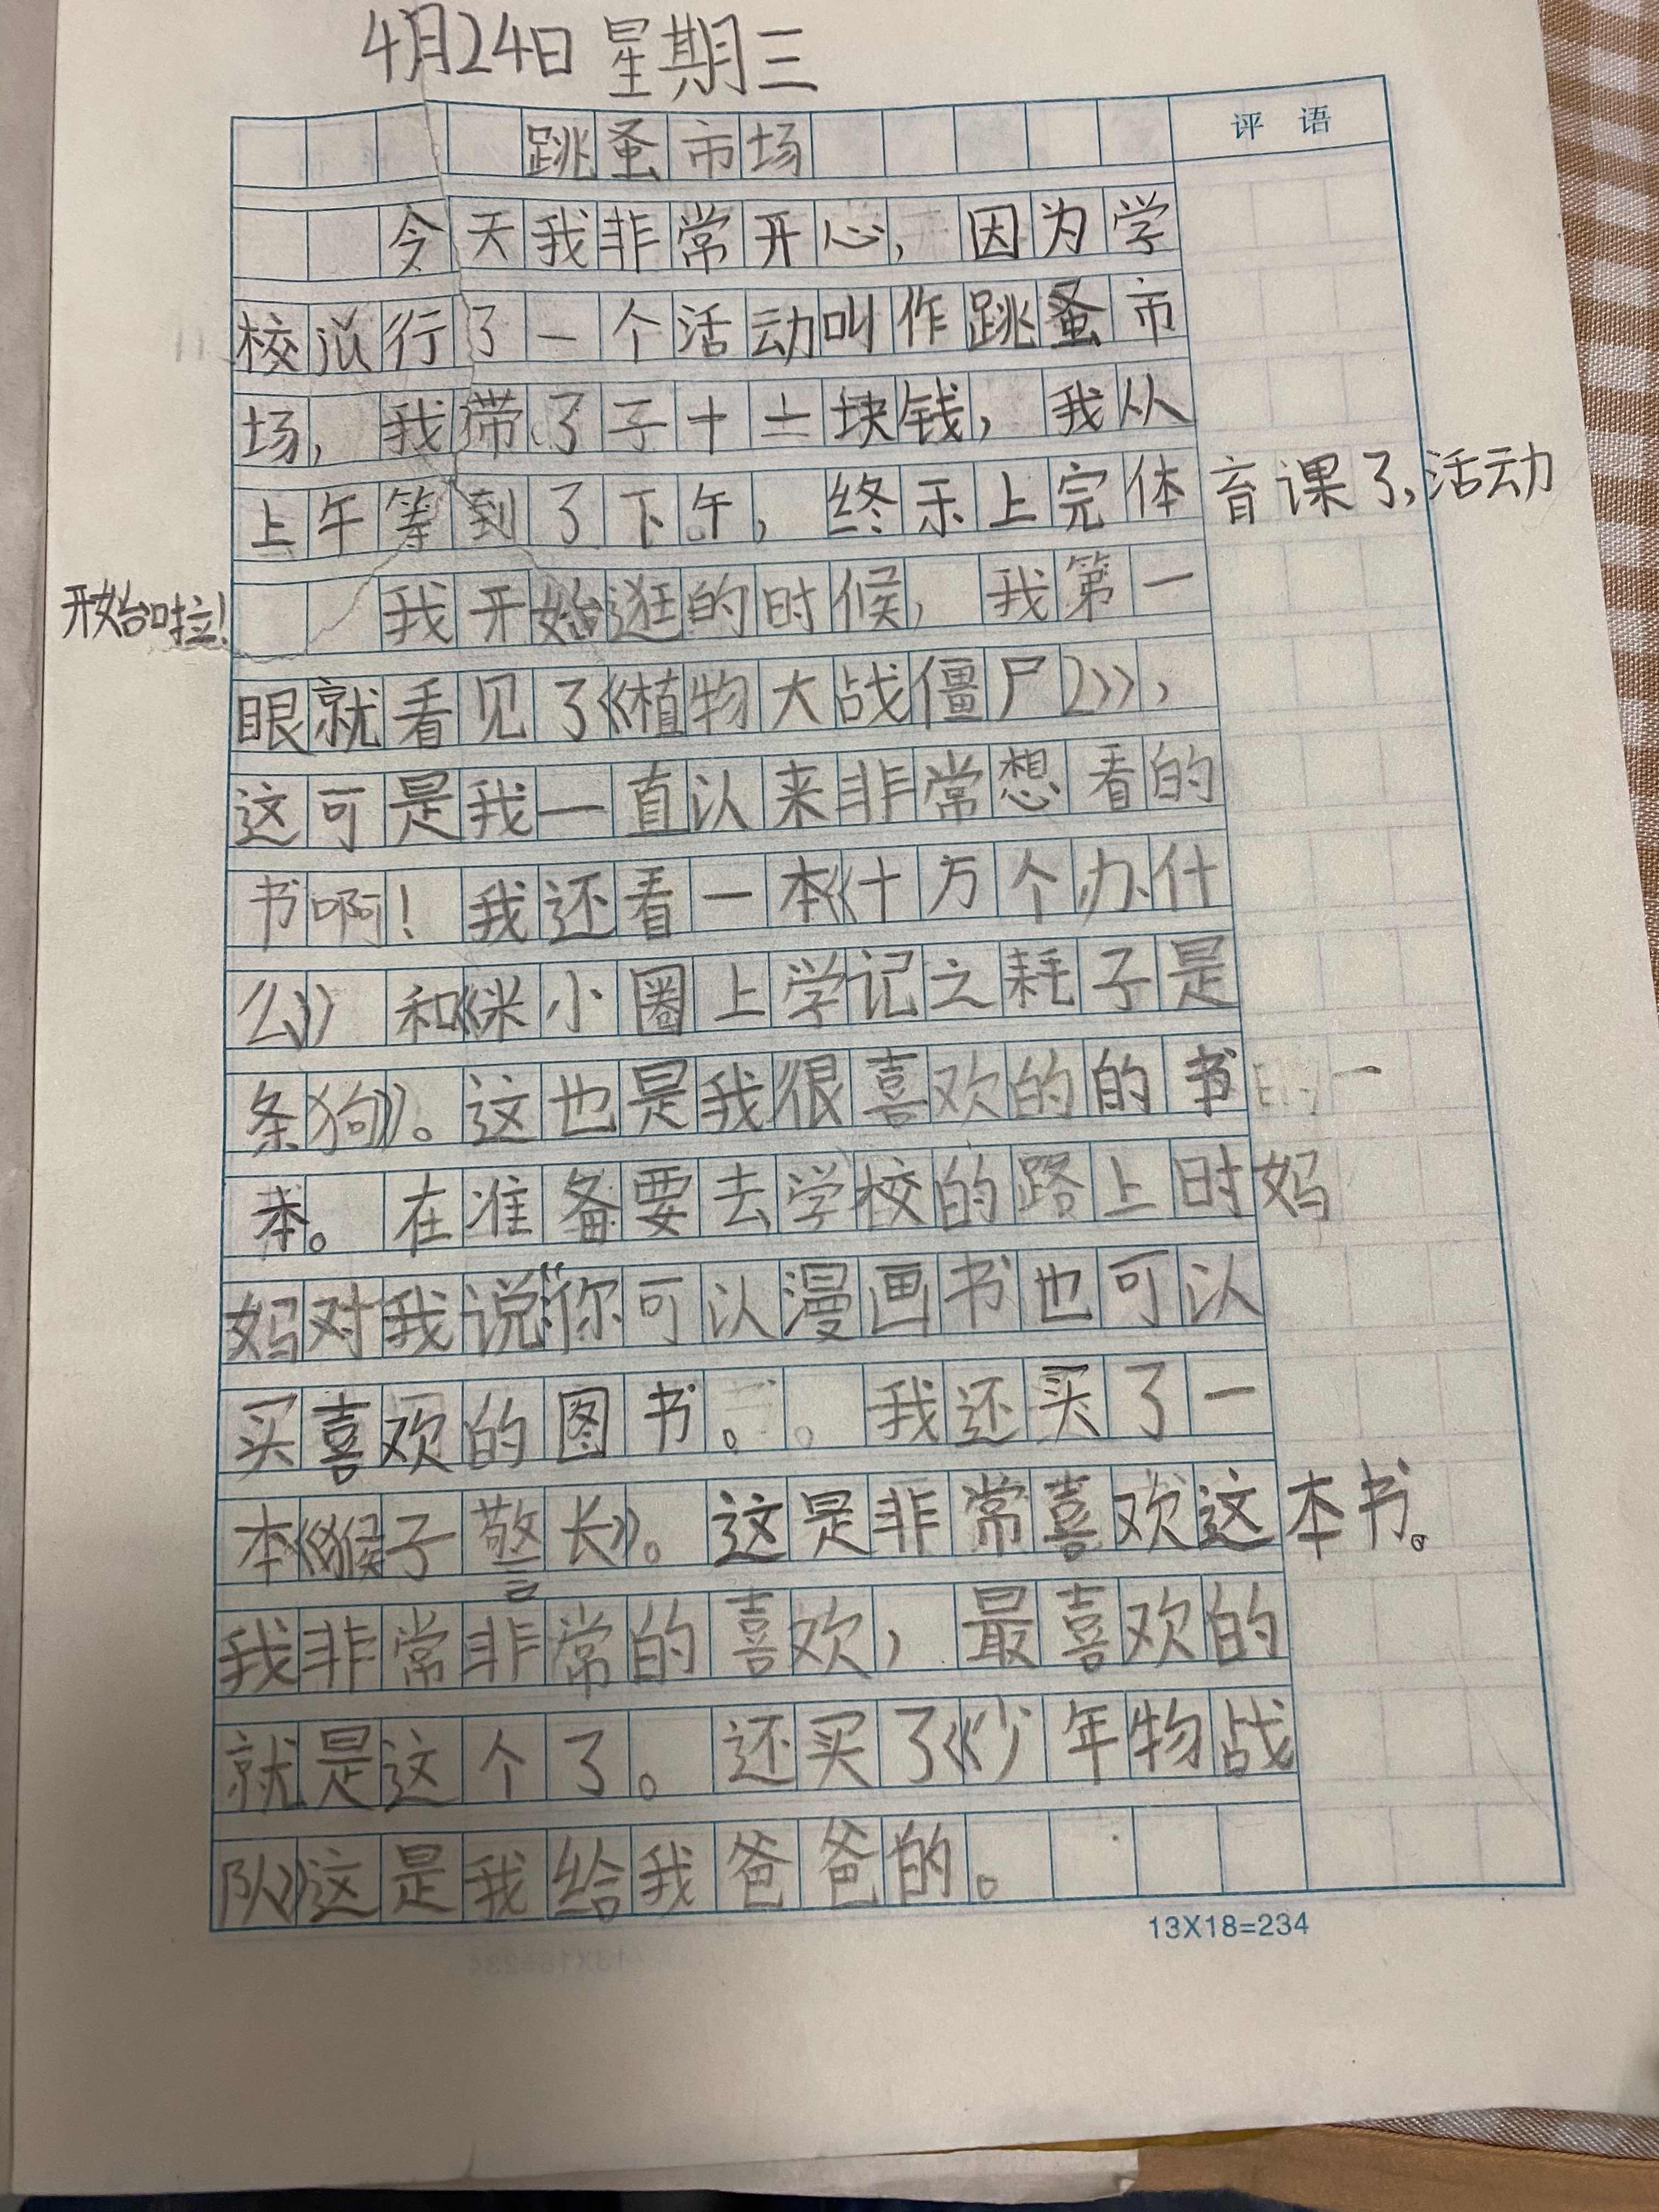 4月24日 星期三
评 语
跳蚤市场
今天我非常开心，因为学
校 行了一个活动叫作跳蚤市
场，我带了子十士块钱，我从
上午等到了下午，终乐上完体育课了，活动
开始啦！
我开始逛的时候，我第一
眼就看见了《植物大战僵尸2》，
这可是我一直以来非常想看的
书啊！我还看一本《十万个办什
么》和《米小圈上学记之耗子是
条狗》。这也是我很喜欢的的书 一
本。在准备要去学校的路上时妈
妈对我说“你可以漫画书也可以
买喜欢的图书。。我还买了一
本《猴子警长》。这是非常喜欢这本书。
我非常非常的喜欢，最喜欢的
就是这个了。还买了《少年物战
队》这是我给我爸爸的。
13X18=234